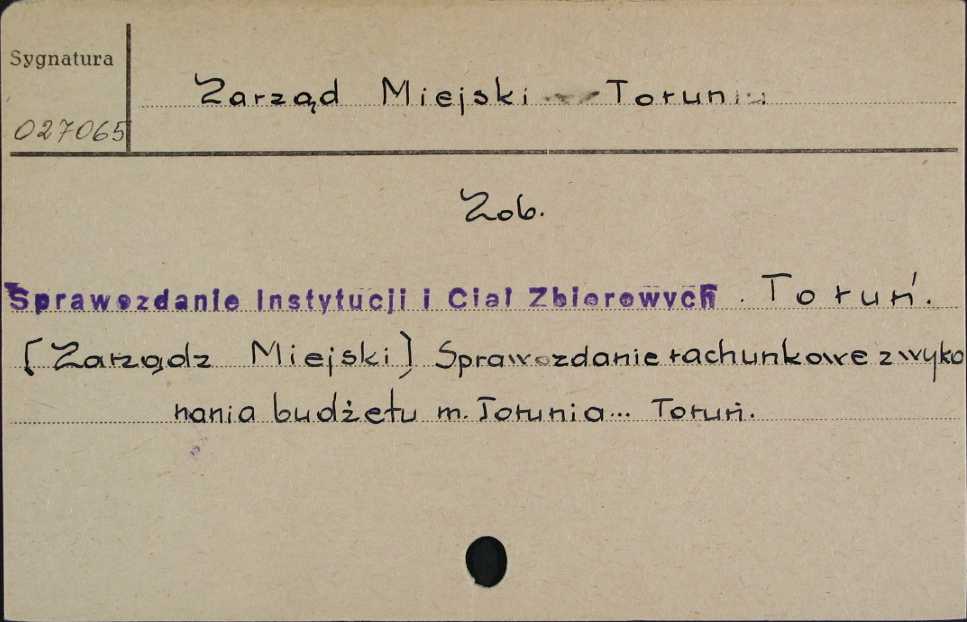 Sygnatura
027065
Zarząd Miejski Toruniu
Zob.
Sprawozdanie Instytucji i Ciał Zbiorowych. Toruń.
[Zarządz Miejski] Sprawozdanie rachunkowe z wyko
nania budżetu m. Torunia... Toruń.